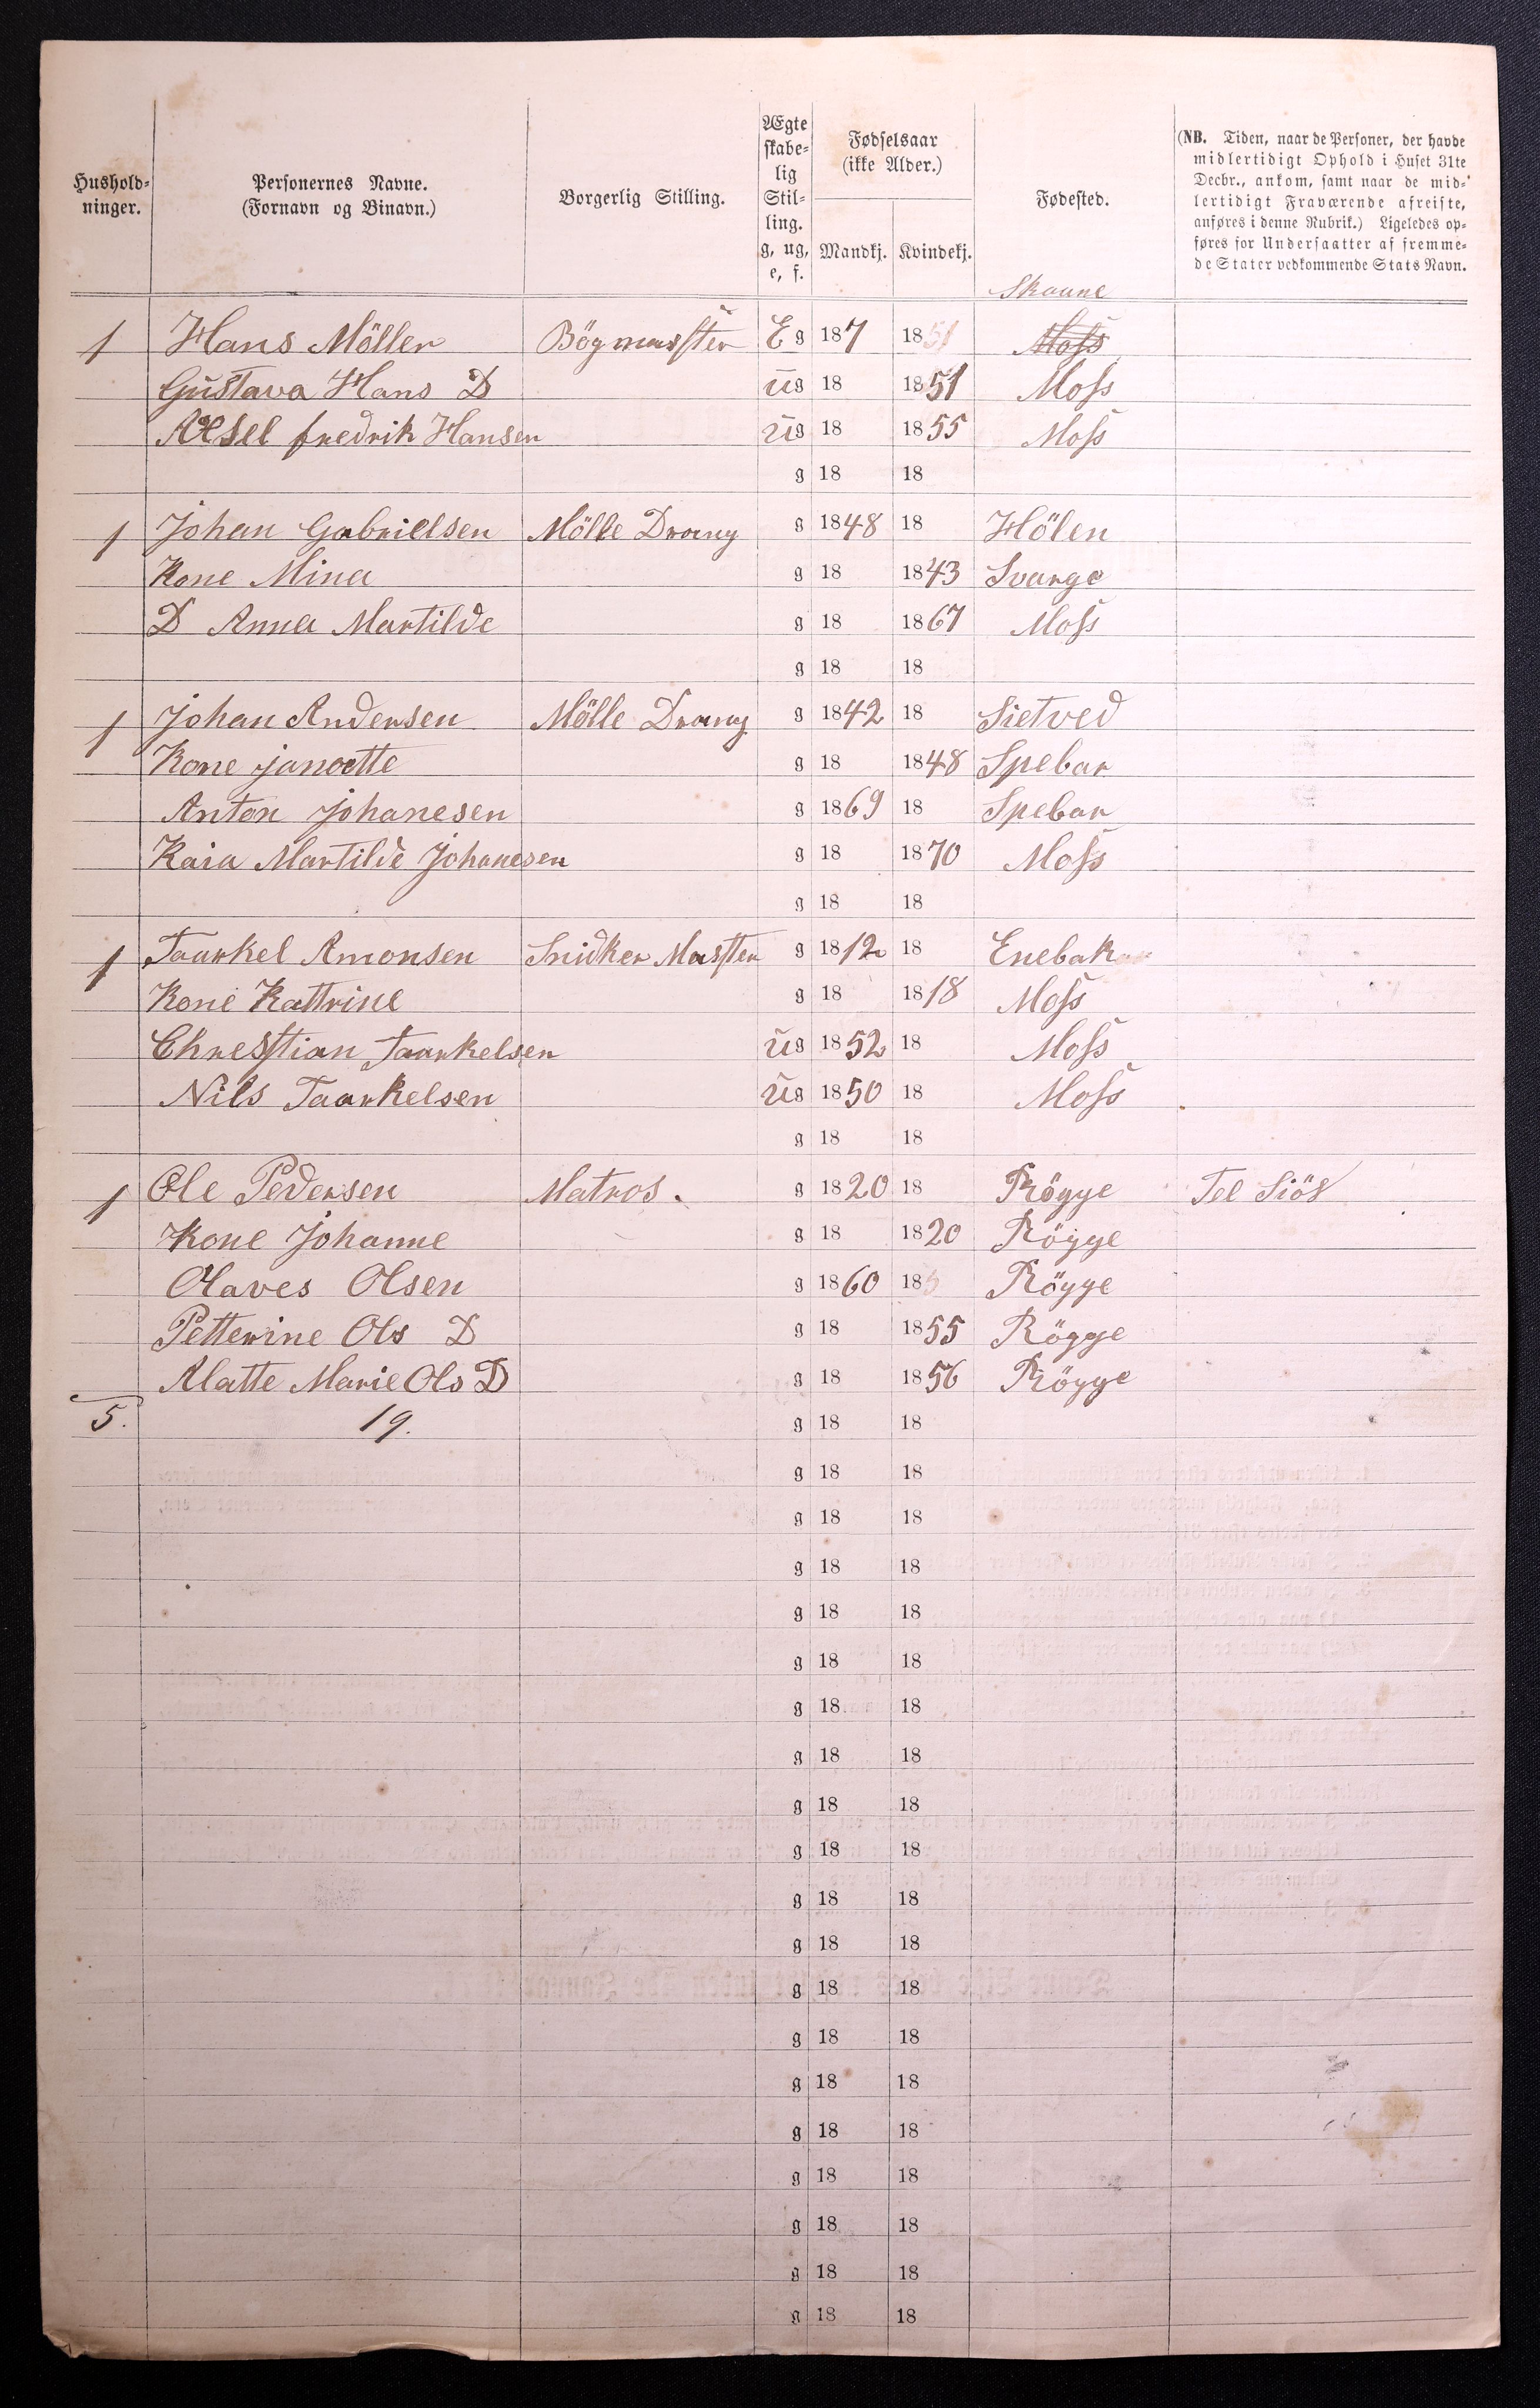 Hushold-
ninger.
Personernes Navne.
(Fornavn og Binavn.)
Borgerlig Stilling.
Ægte
skabe-
lig
Stil-
ling.
g, ug,
e, f.
Fødselsaar
(ikke Alder.)
Mandkj. Kvindekj.
Fødested.
(NB. Tiden, naar de Personer, der havde
midlertidigt Ophold i Huset 31te
Decbr., ankom, samt naar de mid-
lertidigt Fraværende afreiste,
anføres i denne Rubrik.) Ligeledes op-
føres for Undersaatter af fremme-
de Stater vedkommende Stats Navn.
Skaune
1 Hans Möller Bögmasster E g 187 1851 Moss
Gustava Hans D ug 18 1851 Moss
Aksel fredrik Hansen ug 18 1855 Moss
g 18 18
1 Johan Gabrielsen Mölle Drang g 1848 18 Hölen
Kone Mina g 18 1843 Svarge
D Anna Martilde g 18 1867 Moss
g 18 18
1 Johan Andersen Mölle Drang g 1842 18 Sietved
Kone janoette g 18 1848 Spebar
Anton Johanesen g 1869 18 Spebar
Kaia Martilde Johanesen g 18 1870 Moss
g 18 18
1 Taarkel Amonsen Snidker Masster g 1812 18 Enebak
Kone Kattrine g 18 1818 Moss
Chresstian Taarkelsen ug 1852 18 Moss
Nils Taarkelsen ug 1850 18 Moss
g 18 18
1 Ole Pedersen Matros. g 1820 18 Rögge Tel Siös
Kone Johanne g 18 1820 Rögge
Olaves Olsen g 1860 185 Rögge
Petterine Ols D g 18 1855 Rögge
Alatte Marie Ols D g 18 1856 Rögge
5. 19. g 18 18
g 18 18
g 18 18
g 18 18
g 18 18
g 18 18
g 18 18
g 18 18
g 18 18
g 18 18
g 18 18
g 18 18
g 18 18
g 18 18
g 18 18
g 18 18
g 18 18
g 18 18
g 18 18
g 18 18